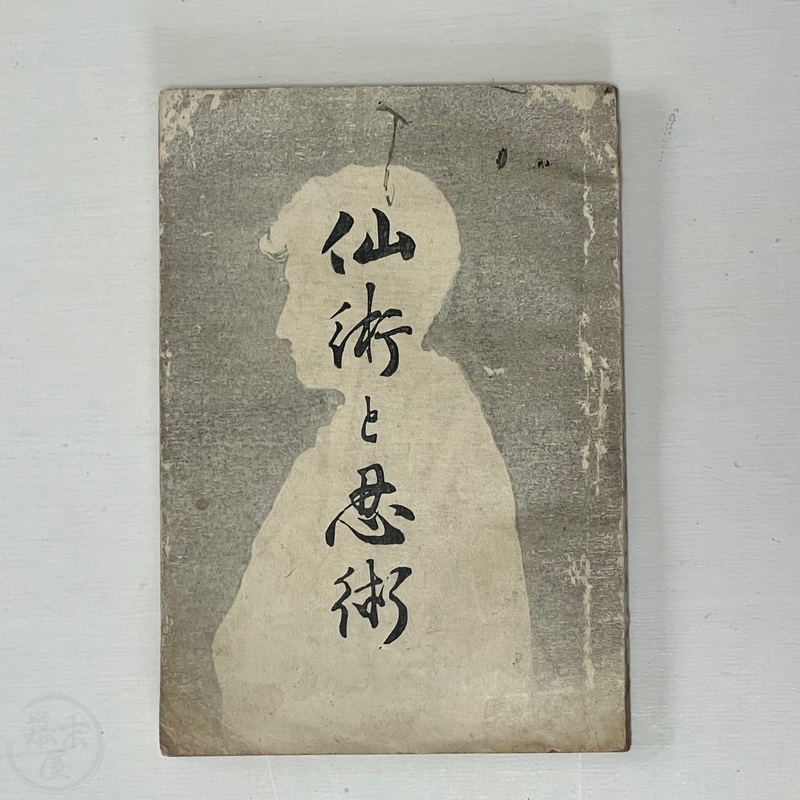 仙術と忍術
幕末屋